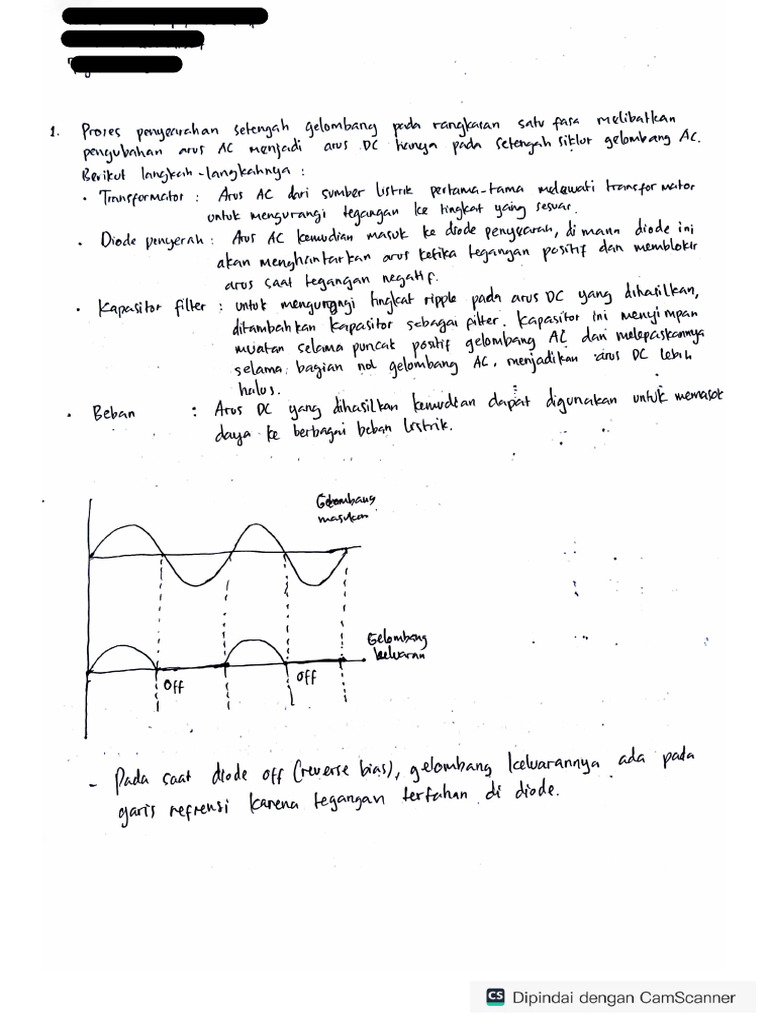 1. Proses penyearahan setengah gelombang pada rangkaian satu fasa melibatkan
pengubahan arus AC menjadi arus DC hanya pada setengah siklus gelombang AC.
Berikut langkah-langkahnya :
• Transformator : Arus AC dari sumber listrik pertama-tama melewati transformator
untuk mengurangi tegangan ke tingkat yang sesuai.
• Diode penyerah : Arus AC kemudian masuk ke diode penyearah, di mana diode ini
akan menghantarkan arus ketika tegangan positif dan memblokir
arus saat tegangan negatif.
• Kapasitor filter : untuk mengurangi tingkat ripple pada arus DC yang dihasilkan,
ditambahkan kapasitor sebagai filter. Kapasitor ini menyimpan
muatan selama puncak positif gelombang AC dan melepaskannya
selama bagian nol gelombang AC, menjadikan arus DC lebih
halus.
• Beban : Arus DC yang dihasilkan kemudian dapat digunakan untuk memasok
daya ke berbagai beban listrik.
Gelombang
masukan
Gelombang
keluaran
Off
Off
- Pada saat diode off (reverse bias), gelombang keluarannya ada pada
garis refrensi karena tegangan tertahan di diode.
CS Dipindai dengan CamScanner